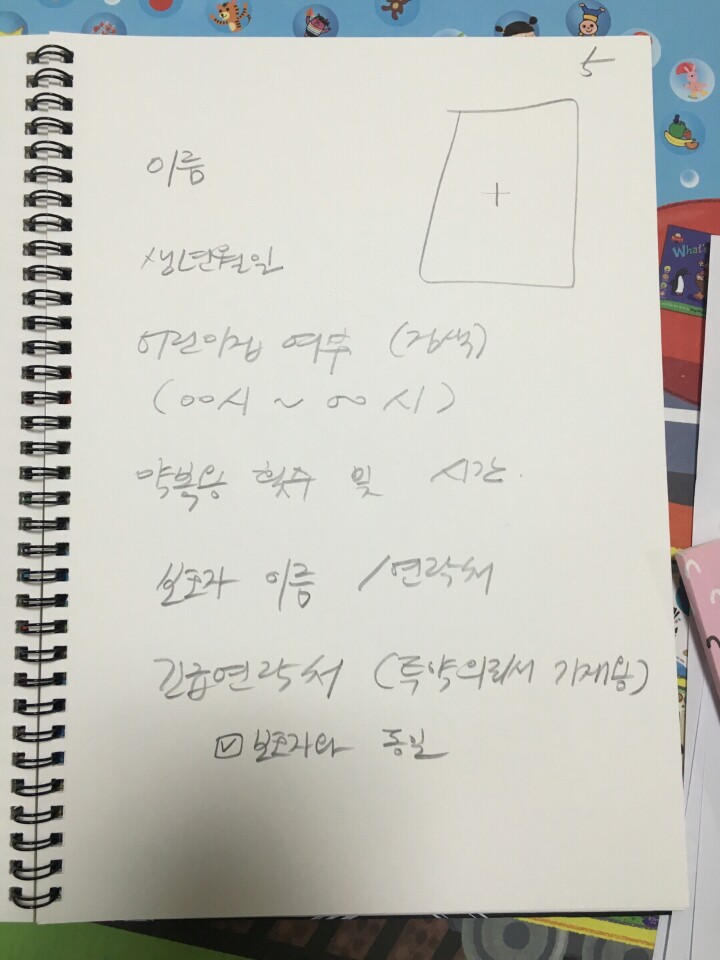 5
이름
생년월일
어린이집 여부 (검색)
(00시 ~ 00시)
약복용 횟수 및 시간.
보호자 이름 / 연락처
긴급연락처 (투약의뢰서 기재용)
☑ 보호자와 동일
What's